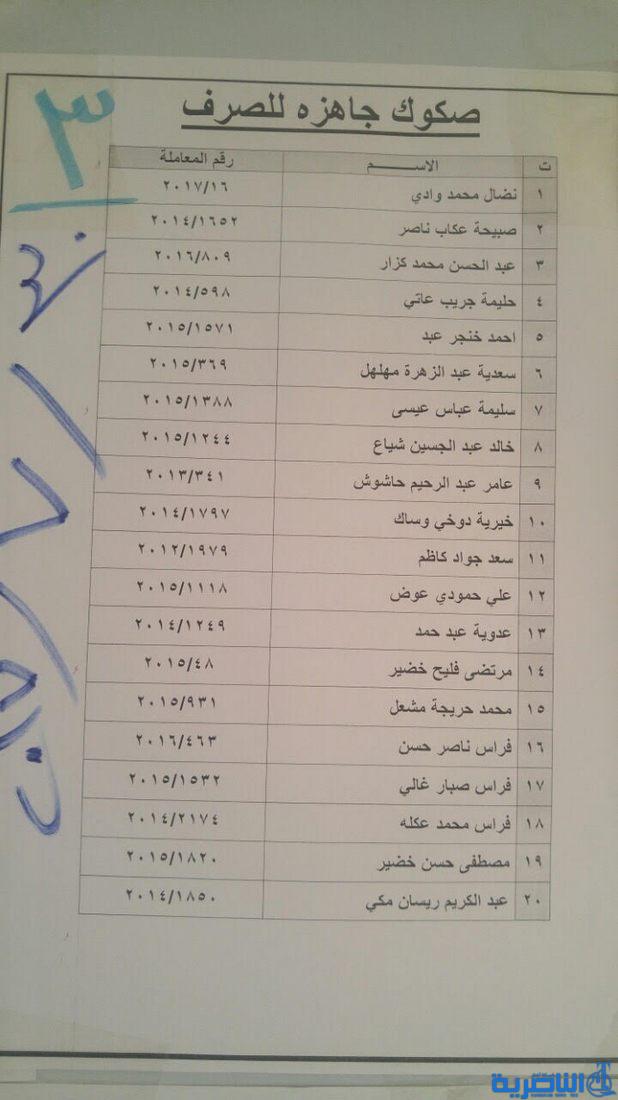 صكوك جاهزه للصرف
ت الاســـم رقم المعاملة
١ نضال محمد وادي ٢٠١٧/١٦
٢ صبيحة عكاب ناصر ٢٠١٤/١٦٥٢
٣ عبد الحسن محمد كزار ٢٠١٦/٨٠٩
٤ حليمة جريب عاتي ٢٠١٤/٥٩٨
٥ احمد خنجر عبد ٢٠١٥/١٥٧١
٦ سعدية عبد الزهرة مهلهل ٢٠١٥/٣٦٩
٧ سليمة عباس عيسى ٢٠١٥/١٣٨٨
٨ خالد عبد الجسين شياع ٢٠١٥/١٢٤٤
٩ عامر عبد الرحيم حاشوش ٢٠١٣/٣٤١
١٠ خيرية دوخي وساك ٢٠١٤/١٧٩٧
١١ سعد جواد كاظم ٢٠١٢/١٩٧٩
١٢ علي حمودي عوض ٢٠١٥/١١١٨
١٣ عدوية عبد حمد ٢٠١٤/١٢٤٩
١٤ مرتضى فليح خضير ٢٠١٥/٤٨
١٥ محمد حريجة مشعل ٢٠١٥/٩٣١
١٦ فراس ناصر حسن ٢٠١٦/٤٦٣
١٧ فراس صبار غالي ٢٠١٥/١٥٣٢
١٨ فراس محمد عكله ٢٠١٤/٢١٧٤
١٩ مصطفى حسن خضير ٢٠١٥/١٨٢٠
٢٠ عبد الكريم ريسان مكي ٢٠١٤/١٨٥٠
٣
الناصرية